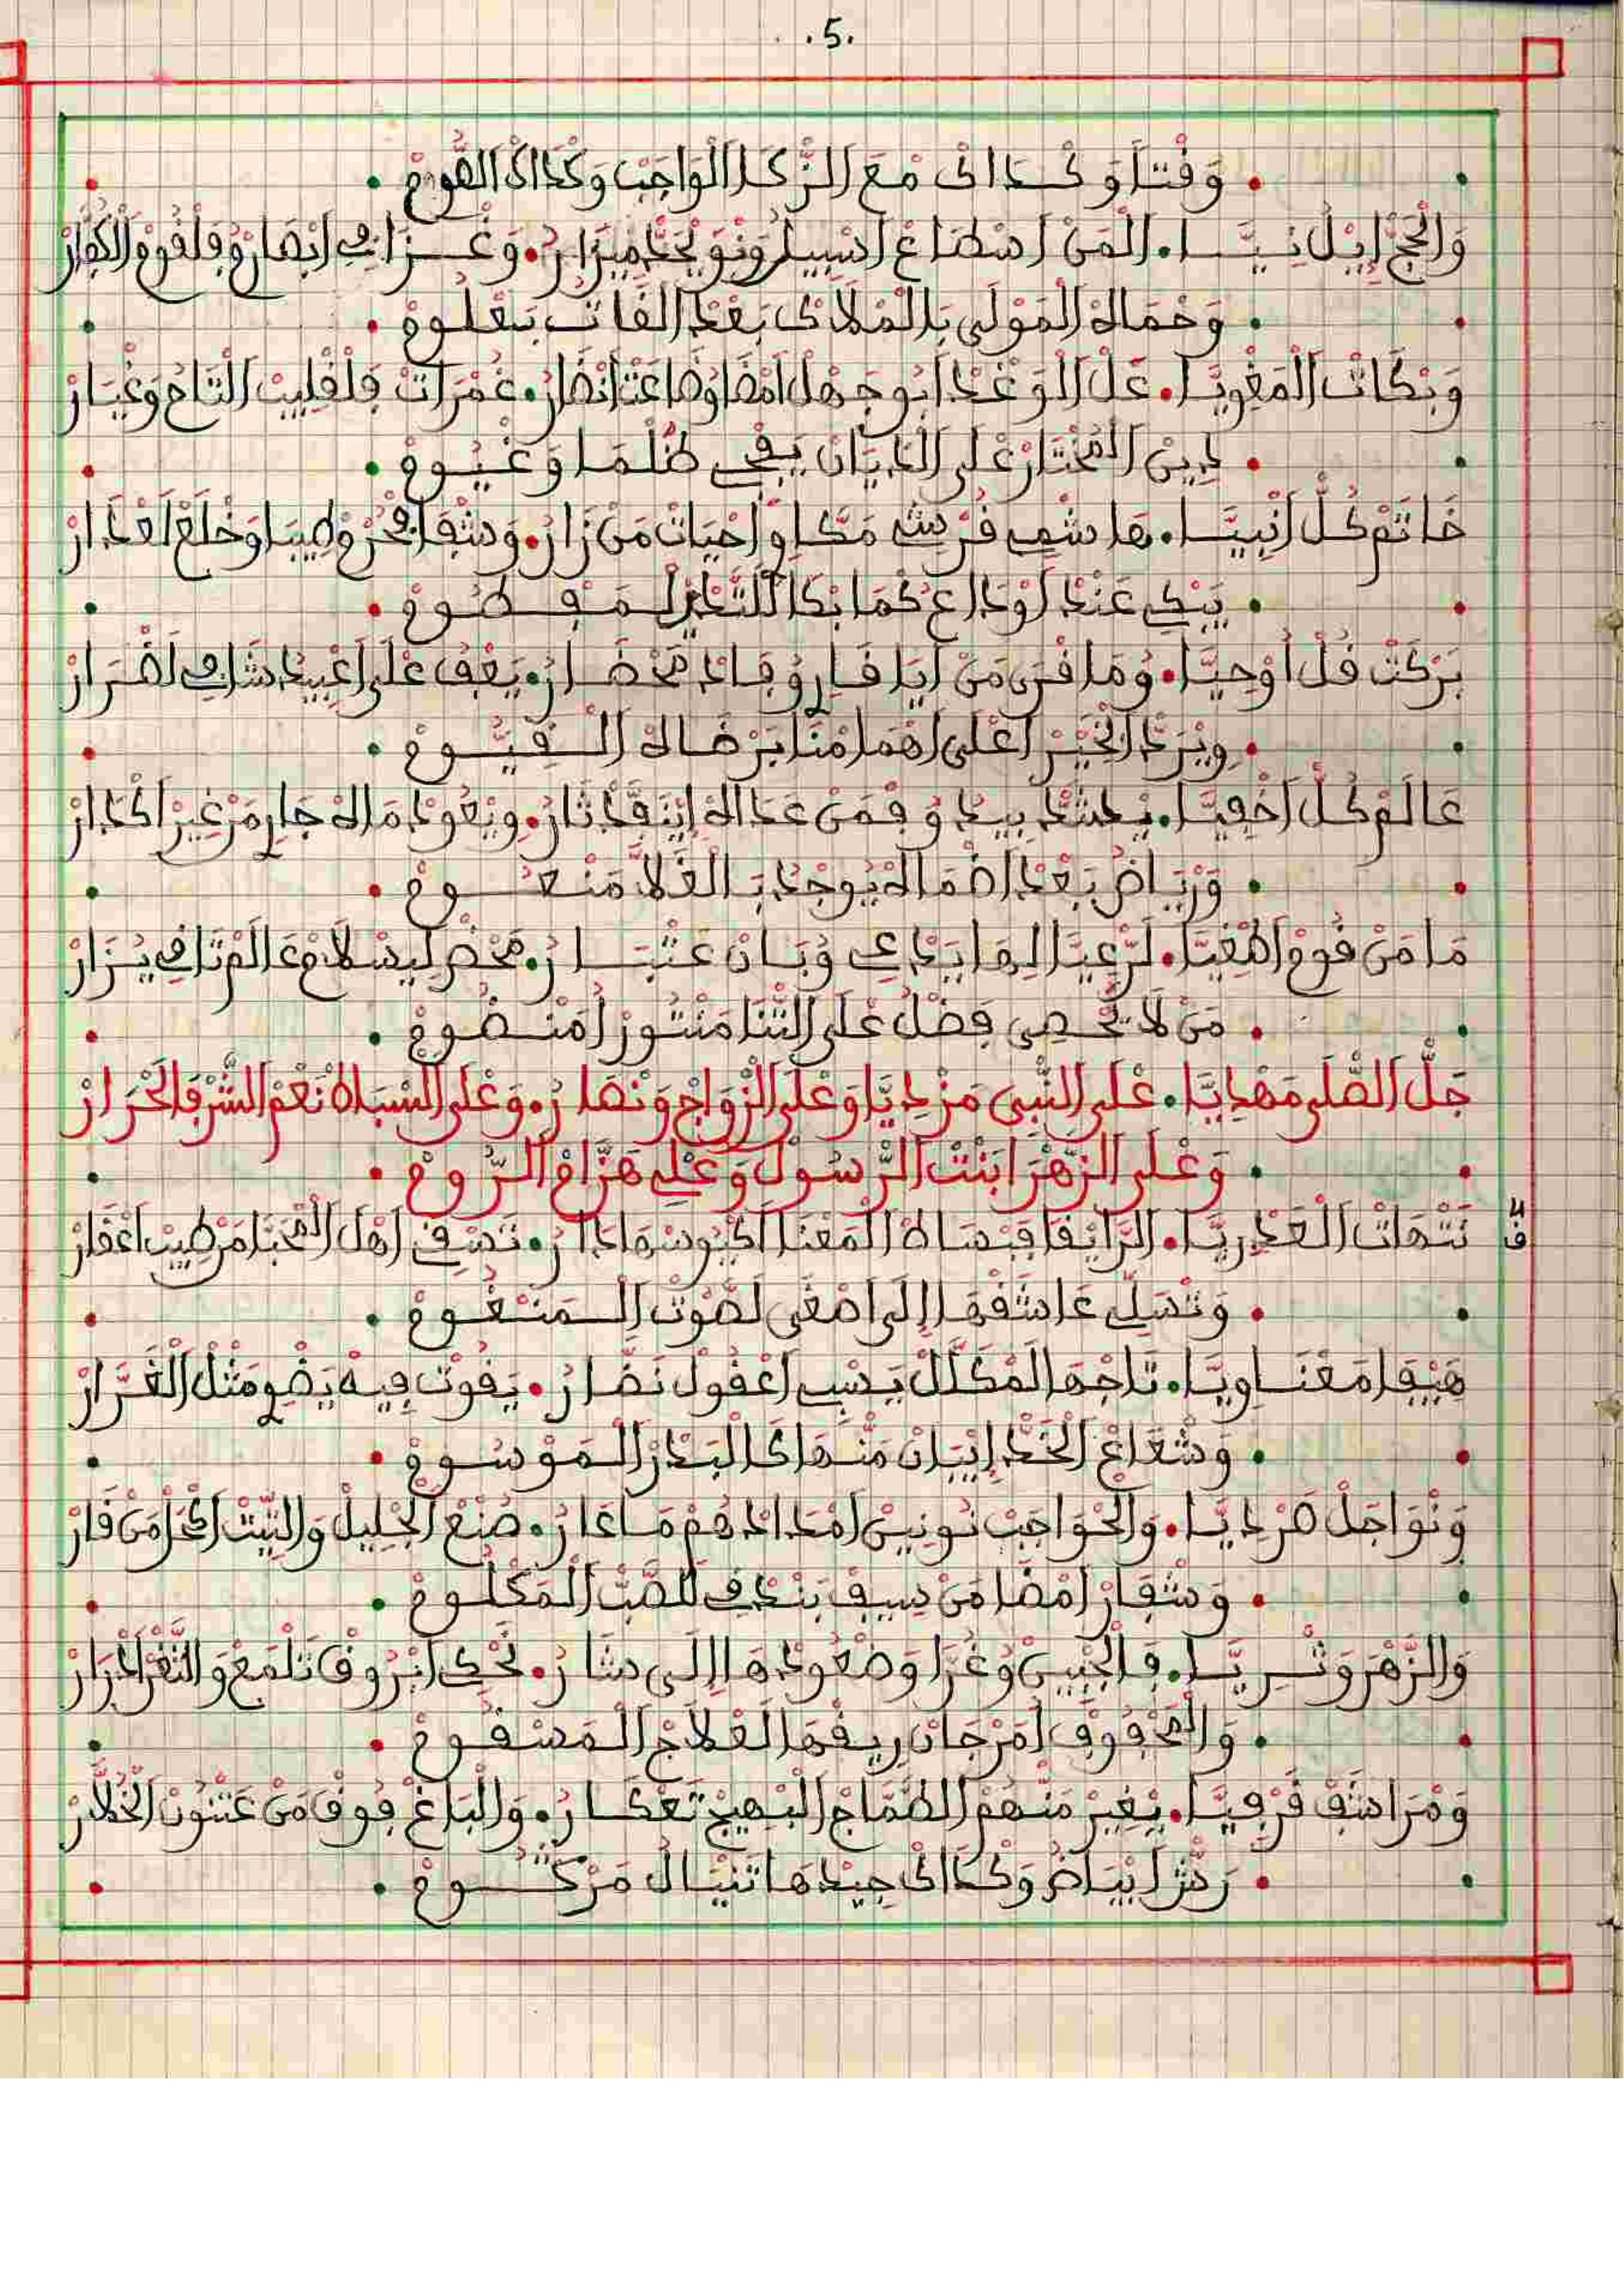 .5.
وَفْتَاوَ كْدَاكْ مْعَ الزَّكَا الْوَاجَبْ وَكْدَاكْ الصُّومْ
وَالْحَجّْ إِيلْ نِيَّا . الْمَنْ اسْطَاعْ اسْبِيلُ وَنْوَ يْحَجّْ مِيزَارْ . وَغْزَا فِي ابْصَارُ فَلْقُومْ الْكُفَّارْ
وَحْمَاهْ الْمَوْلَى بَالْمْلَاكْ بَعْدْ الْفَاتْ بَعْلُومْ
وَبْكَاتْ الْمَغْوِيَّا . عَلْ الْوَغْدْ ابُوجَهْلْ امْضَاوْ ضَاعَتْ انْضَارْ . غُمْرَاتْ فَلْقْلِيبْ التَّاحْ وَغْبَارْ
دِينْ الْمُخْتَارْ عْلَى الدْيَانْ يَفْجِي ظُلْمَا وَغْيُومْ
خَاتَمْ كُلّْ انْبِيَّا . هَاشْمِي قُرْشِي مَكَّاوِي احْيَاتْ مَنْ زَارْ . وَشْفَا مَحْرُمْ طِيبَا وَخْلَعْ لَعْدَارْ
يَبْكِي عَنْدْ لَوْدَاعْ كْمَا بْكَا لَلتَّدْيْ الْمَفْطُومْ
بَرْكَتْ قُلْ اُوحِيَّا . وُمَا قْرَى مَنْ ايَا قَارِي وُقَايْدْ مَحْضَارْ . يَعْفُ عْلَى اعْبِيدْ شَافِي لَضْرَارْ
وِيْرَدّْ الْخَيْرْ اعْلَى اهْمَامْنَا بَرْضَاهْ الْقِيُّومْ
عَالَمْ كُلّْ اخْفِيَّا . يْشَدّْ بِيدُ وُفْمَنْ عَدَاهْ إِيَنْفَدْ ثَارْ . وِيْعُودْ مَاهْ جَارِي مَنْ غِيرْ اكْدَارْ
وَرْيَاضُ بَعْدْ اضْمَاهْ يُوجْدْ بَالْغَلَّا مَنْعُومْ
مَا مَنْ قُومْ اطْغِيَّا . لَرّْعِيَّا لِهَا يَدْعِي وُبَانْ عَتْبَارْ . مَحْضَرْ لِيسْلَامْ عَالَمْ تَافِي يْزَارْ
مَنْ لَا يُحْصِي فَضْلُ عْلَى التّْنَا مَنْتُورْ امَنْضُومْ
جَلّْ الصّْلَى مَهْدِيَّا . عْلَى النّْبِي مَزْدِيَّا وَعْلَى الزْوَاجْ وَنْصَارْ . وَعْلَى السّْبَاطْ نَعْمْ الشُّرْفَا لَحْرَارْ
وَعْلَى الزَّهْرَا بَنْتْ الرّْسُولْ وَعْلِي هَزَّامْ الرُّومْ
ق2 نَتْهَاتْ الْعَدْرِيَّا . الرَّايْقَا فَبْسَاطْ الْمَعْنَا اكْيُوسْهَا دَارْ . تَسْقِي اهْلْ الْمْحَبَّا مَنْ طِيبْ اعْقَارْ
وَتْسَلِّي عَاشَقْهَا إِلَى اصْغَى لَصُّوتْ الْمَنْغُومْ
هَيْفَا مَعْنَاوِيَّا . تَاجْهَا الْمْكَلَّلْ يَسْبِي اعْقُولْ نَضَّارْ . يَفُوتْ فِيهْ يَضْوِي مَثْلْ الْغَرَّارْ
وَشْعَاعْ الْخَدّْ إِيْبَانْ مَنْهَا كَالْبَدْرْ الْمَوْسُومْ
وَنْوَاجَلْ هَرْدِيَّا . وَالْحْوَاجَبْ نُونِينْ امْدَادْهُمْ مَاغَارْ . صُنْعْ الْجْلِيلْ وَالتِّيتْ اكْحَلْ مَنْ قَارْ
وَشْفَارْ امْضَا مَنْ سِيفْ بَنْدْقِي لَلصَّبّْ الْمَكْلُومْ
وَالزَّهْرَ وَتْرِيَّا . فَالْجْبِينْ وُغُرَّا وَصْعُودْهَا إِلَى شَارْ . تَحْكِي ابْرُوقْ تَلْمَعْ وَالتّْغَرْ ادْرَارْ
وَالْمَحْفُوفْ امَرْجَانْ رِيقْهَا لَعْلَاجْ الْمَسْقُومْ
وَمْرَاشَفْ قَرْفِيَّا . يْغِيرْ مَنْهُمْ الطَّمَّاجْ الْبْهِيجْ تَعْكَارْ . وَالْبَاغْ فُوقْ مَنْ عَتْنُونْ الْخُلَّارْ
رَكْشْ ابْيَاضُ وَكْدَاكْ جِيدْهَا تَنْيَالْ مَرْكُومْ